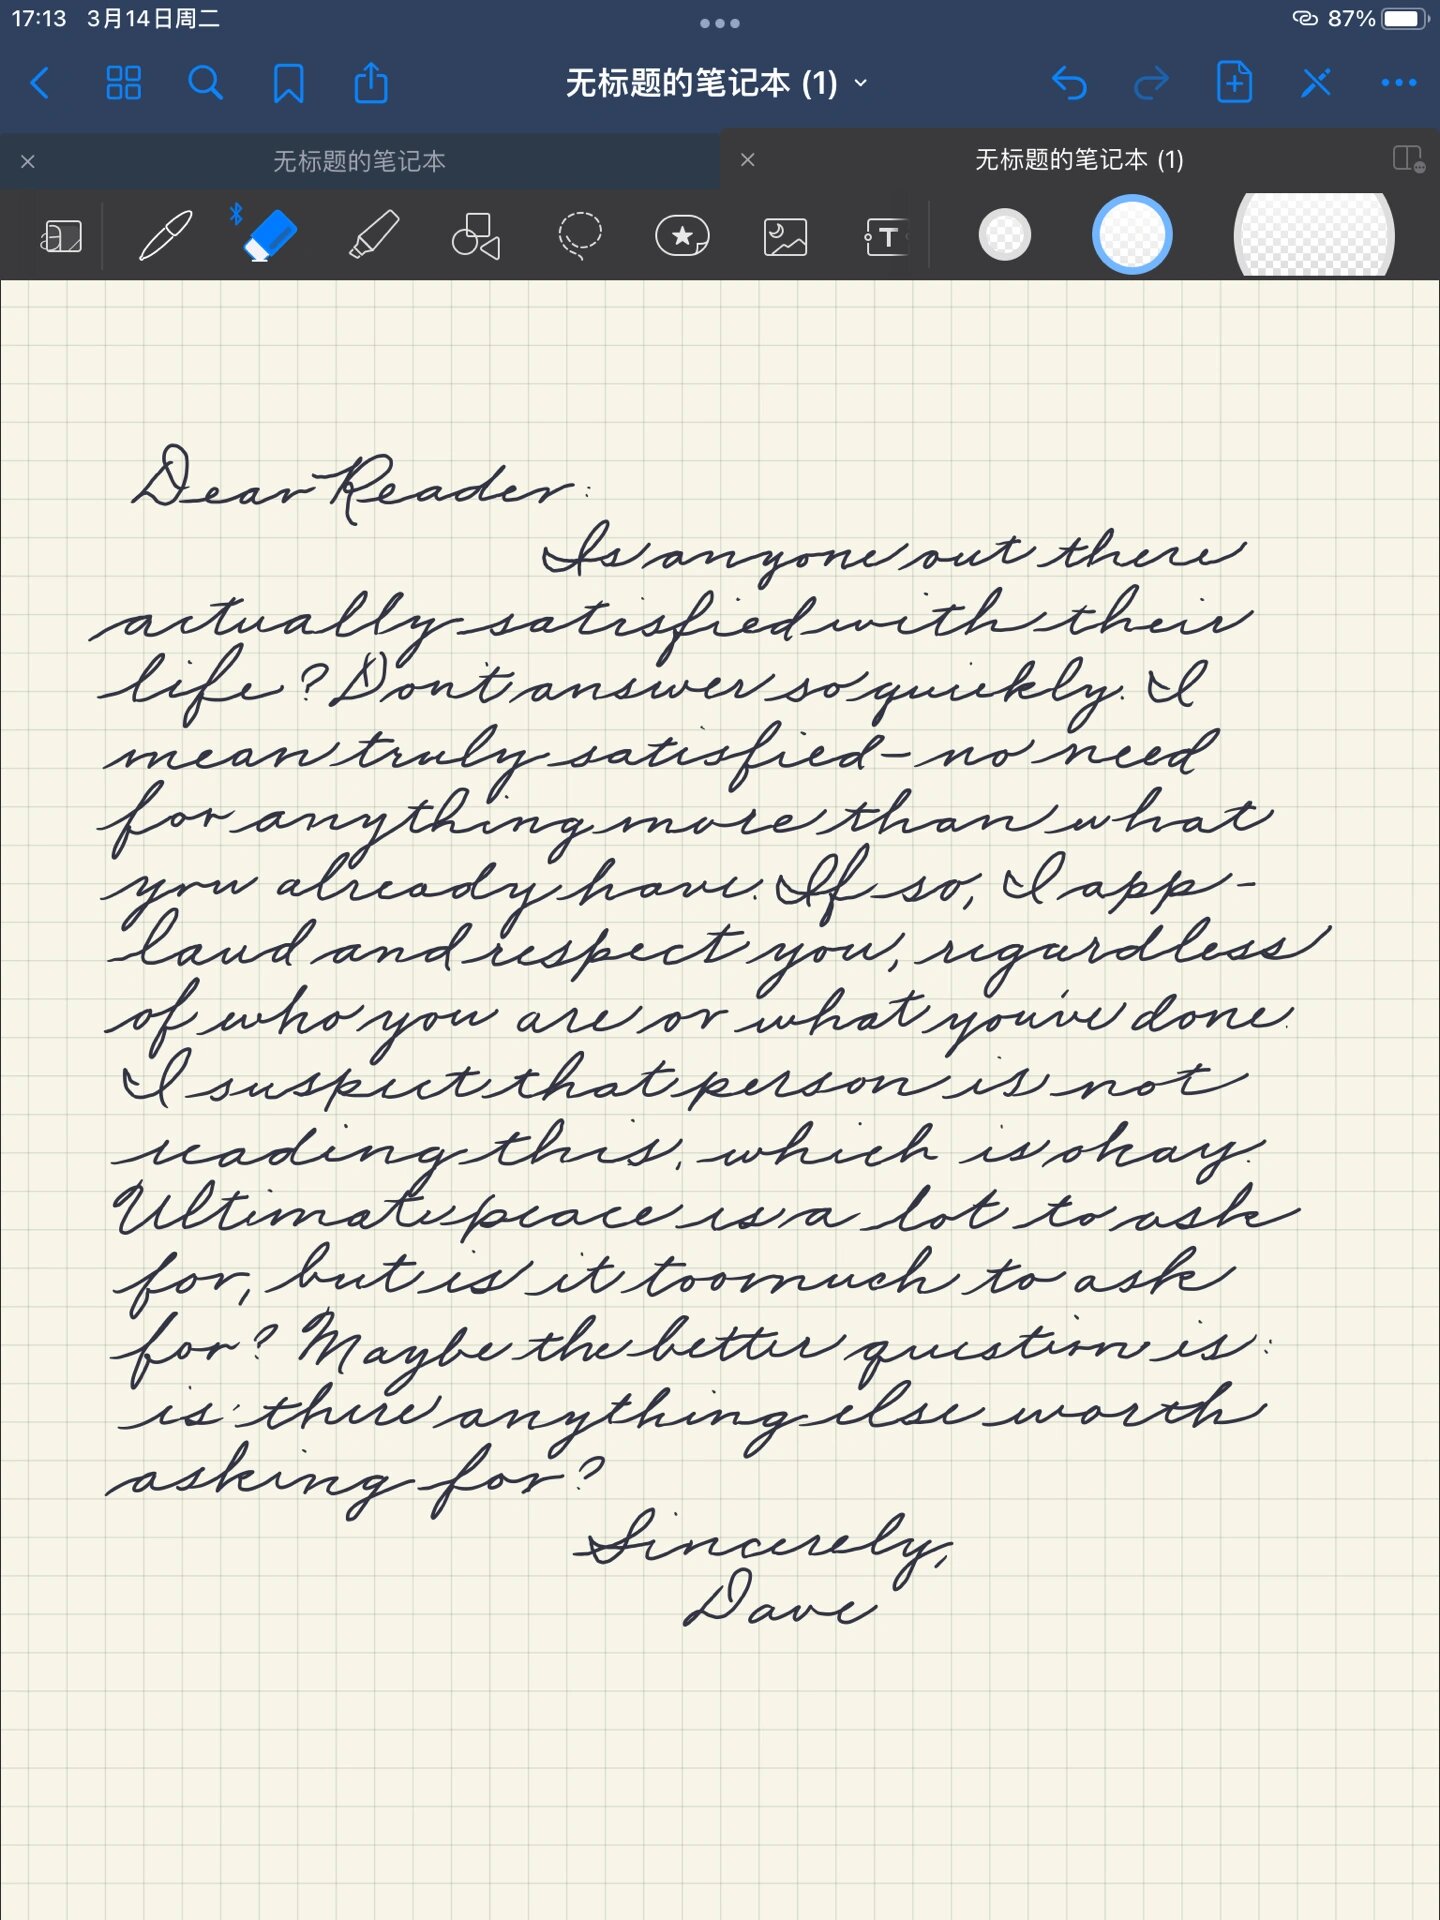 17:13 3月14日周二
87%
无标题的笔记本 (1)
无标题的笔记本
无标题的笔记本 (1)
T
Dear Reader:
Is anyone out there
actually satisfied with their
life? Don't answer so quickly. I
mean truly satisfied – no need
for anything more than what
you already have. If so, I app-
laud and respect you, regardless
of who you are or what you've done.
I suspect that person is not
reading this, which is okay.
Ultimate peace is a lot to ask
for, but is it too much to ask
for? Maybe the better question is:
is there anything else worth
asking for?
Sincerely,
Dave